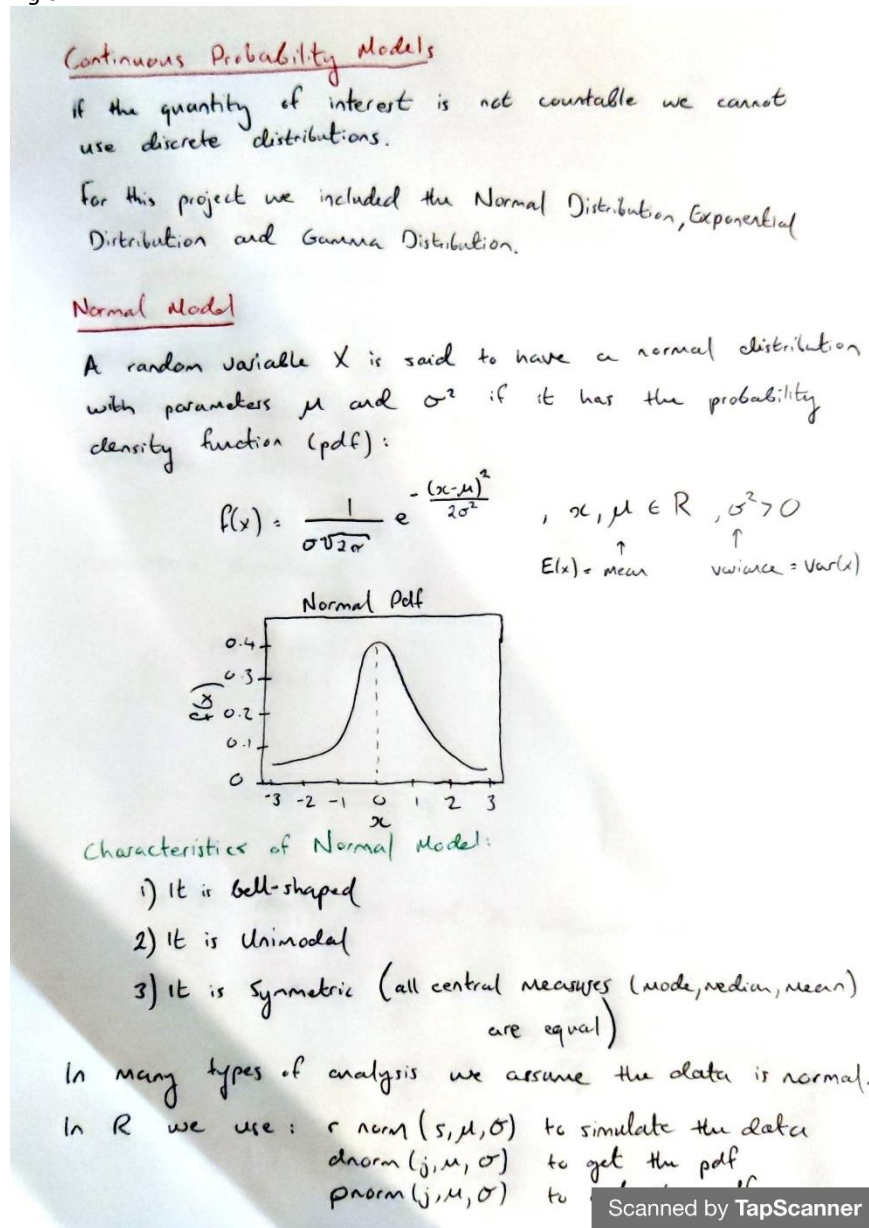 Continuous Probability Models
if the quantity of interest is not countable we cannot
use discrete distributions.
For this project we included the Normal Distribution, Exponential
Distribution and Gamma Distribution.
Normal Model
A random variable X is said to have a normal distribution
with parameters μ and σ² if it has the probability
density function (pdf):
f(x) = 1/(σ√2π) e^(-(x-μ)²/2σ²) , x, μ ∈ R , σ² > 0
↑ ↑
E(x) = mean variance = Var(x)
Normal Pdf
0.4
0.3
f(x)
0.2
0.1
0
-3 -2 -1 0 1 2 3
x
Characteristics of Normal Model:
1) It is bell-shaped
2) It is Unimodal
3) It is Symmetric (all central measures (mode, median, mean)
are equal)
In many types of analysis we assume the data is normal.
In R we use: r norm (s, μ, σ) to simulate the data
dnorm (j, μ, σ) to get the pdf
pnorm (j, μ, σ) to
Scanned by TapScanner